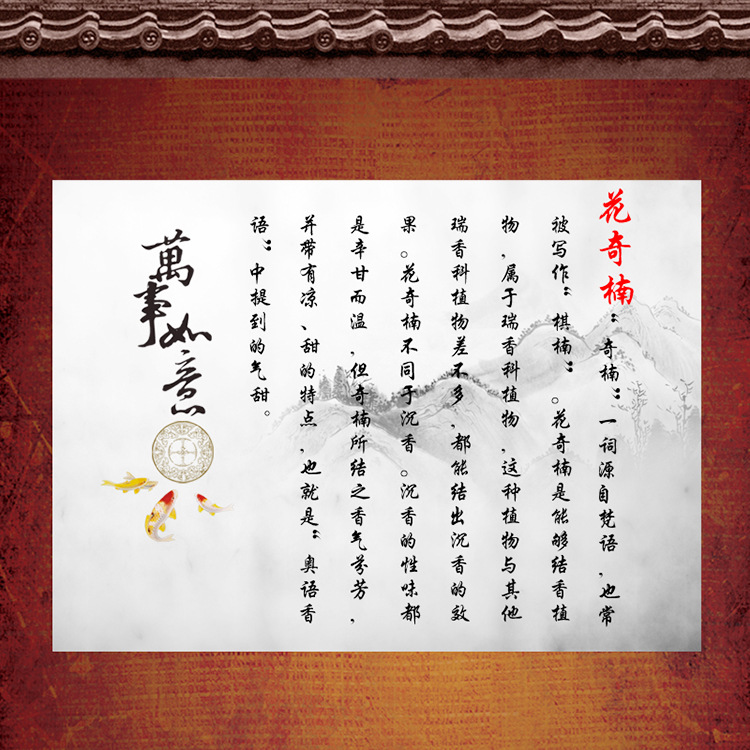 花奇楠“奇楠”一词源自梵语,也常
被写作“棋楠”。花奇楠是能够结香植
物,属于瑞香科植物,这种植物与其他
瑞香科植物差不多,都能结出沉香的效
果。花奇楠不同于沉香。沉香的性味都
是辛甘而温,但奇楠所结之香气芬芳,
并带有凉、甜的特点,也就是“奥语香
语”中提到的气甜。
萬事如意